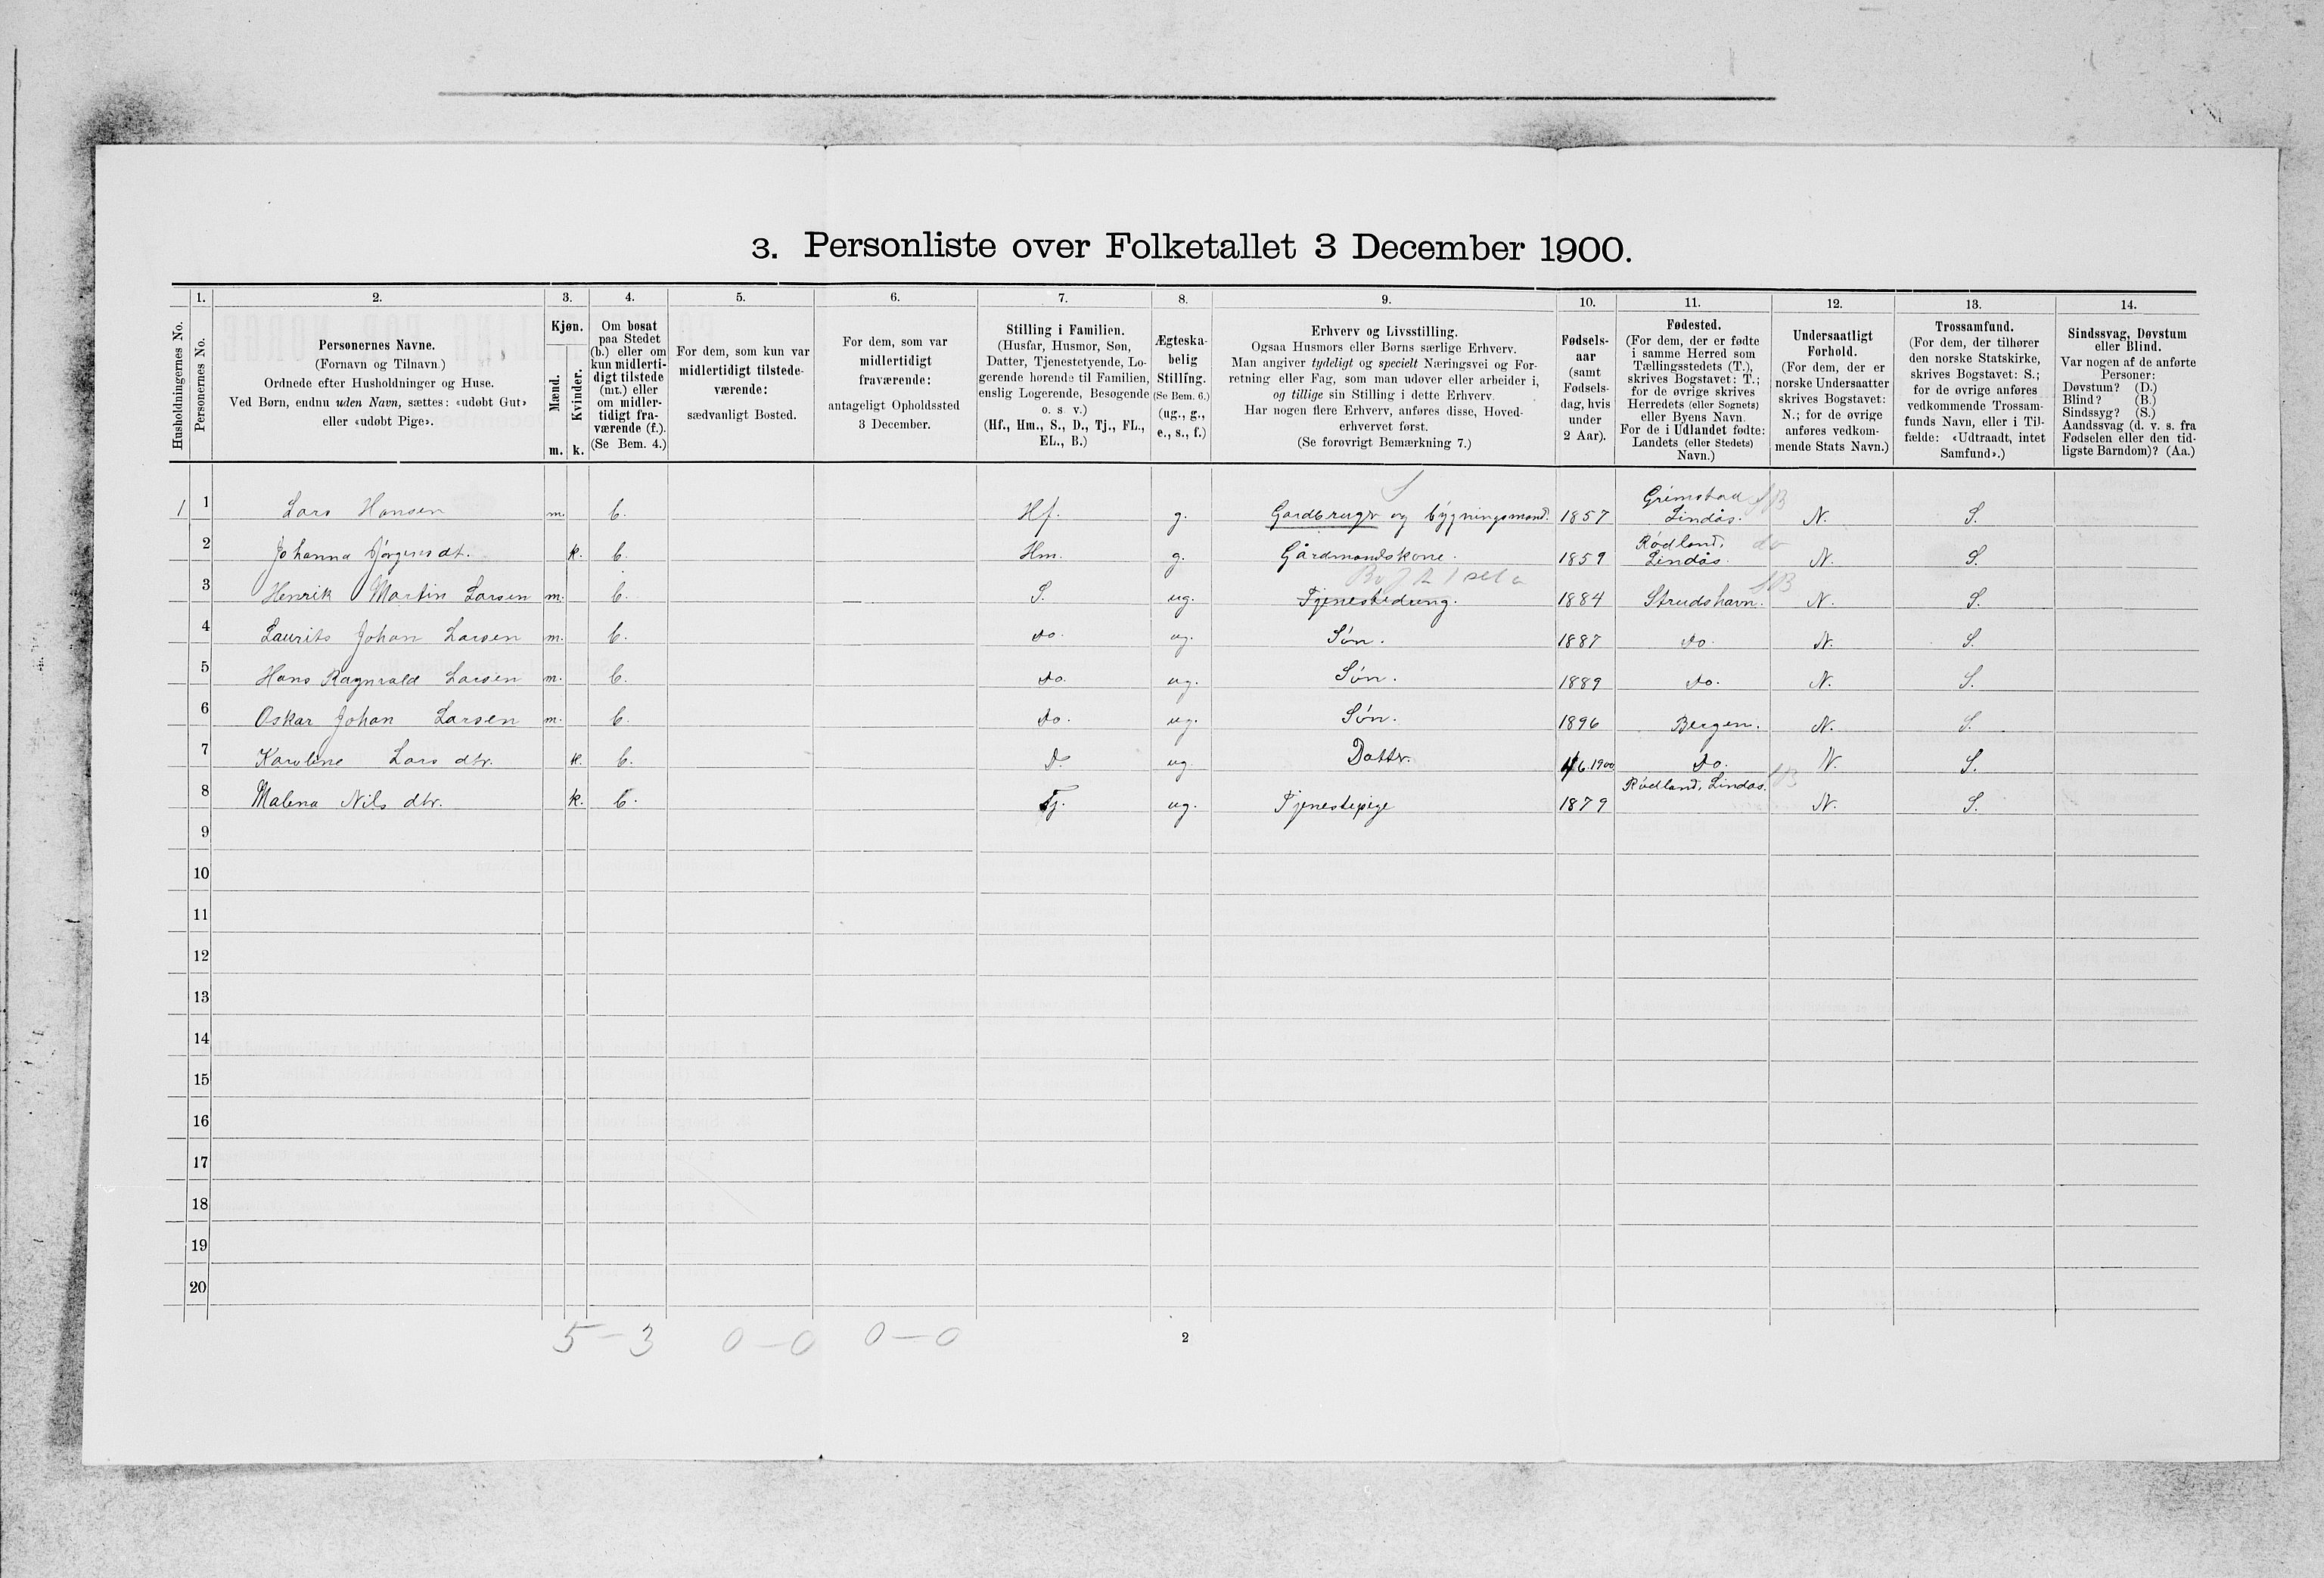 3. Personliste over Folketallet 3 December 1900.
1. 2. 3. 4. 5. 6. 7. 8. 9. 10. 11. 12. 13. 14.
Husholdningernes No.
Personernes No.
Personernes Navne.
(Fornavn og Tilnavn)
Ordnede efter Husholdninger og Huse.
Ved Børn, endnu uden Navn, sættes: «udøbt Gut»
eller «udøbt Pige».
Kjøn.
Mænd.
Kvinder.
m. k.
Om bosat
paa Stedet
(b.) eller om
kun midlerti-
digt tilstede
(mt.) eller
om midler-
tidigt fra-
værende (f.).
(Se Bem. 4.)
For dem, som kun var
midlertidigt tilstede-
værende:
sædvanligt Bosted.
For dem, som var
midlertidigt
fraværende:
antageligt Opholdssted
3 December.
Stilling i Familien.
(Husfar, Husmor, Søn,
Datter, Tjenestetyende, Lo-
gerende hørende til Familien,
enslig Logerende, Besøgende
o. s. v.)
(Hf., Hm., S., D., Tj., FL.,
EL., B.)
Ægteska-
belig
Stilling.
(Se Bem. 6.)
(ug., g.,
e., s., f.)
Erhverv og Livsstilling.
Ogsaa Husmors eller Børns særlige Erhverv.
Man angiver tydeligt og specielt Næringsvei og For-
retning eller Fag, som man udøver eller arbeider i,
og tillige sin Stilling i dette Erhverv.
Har nogen flere Erhverv, anføres disse, Hoved-
erhvervet først.
(Se forøvrigt Bemærkning 7.)
Fødsels-
aar
(samt
Fødsels-
dag, hvis
under
2 Aar).
Fødested.
(For dem, der er fødte
i samme Herred som
Tællingsstedets (T.),
skrives Bogstavet: T.;
for de øvrige skrives
Herredets (eller Sognets)
eller Byens Navn
For de i Udlandet fødte:
Landets (eller Stedets)
Navn.)
Undersaatligt
Forhold.
(For dem, der er
norske Undersaatter
skrives Bogstavet:
N.; for de øvrige
anføres vedkom-
mende Stats Navn.)
Trossamfund.
(For dem, der tilhører
den norske Statskirke,
skrives Bogstavet: S.;
for de øvrige anføres
vedkommende Trossam-
funds Navn, eller i Til-
fælde: «Udtraadt, intet
Samfund».)
Sindssvag, Døvstum
eller Blind.
Var nogen af de anførte
Personer:
Døvstum? (D.)
Blind? (B.)
Sindssyg? (S.)
Aandssvag (d. v. s. fra
Fødselen eller den tid-
ligste Barndom)? (Aa.)
1 1 Lars Hansen m. b. Hf. g. Gardbruger og bygningsmand. 1857 Grimstad Lindås. N. S.
2 Johanna Jørgensdt. k. b. Hm. g. Gårdmandskone. 1859 Rødland, Lindås. do N. S.
3 Henrik Martin Larsen m. b. S. ug. Tjenestedreng. 1884 Strudshavn. N. S.
4 Laurits Johan Larsen m. b. do. ug. Søn. 1887 do. N. S.
5 Hans Ragnvald Larsen m. b. do. ug. Søn. 1889 do. N. S.
6 Oskar Johan Larsen m. b. do. ug. Søn. 1896 Bergen. N. S.
7 Karoline Lars dtr. k. b. D. ug. Datter. 4/6.1900 Do. N. S.
8 Malena Nils dtr. k. b. Tj. ug. Tjenestepige 1879 Rødland, Lindas. N. S.
9
10
11
12
13
14
15
16
17
18
19
20
5 – 3 0 – 0 0 – 0
2